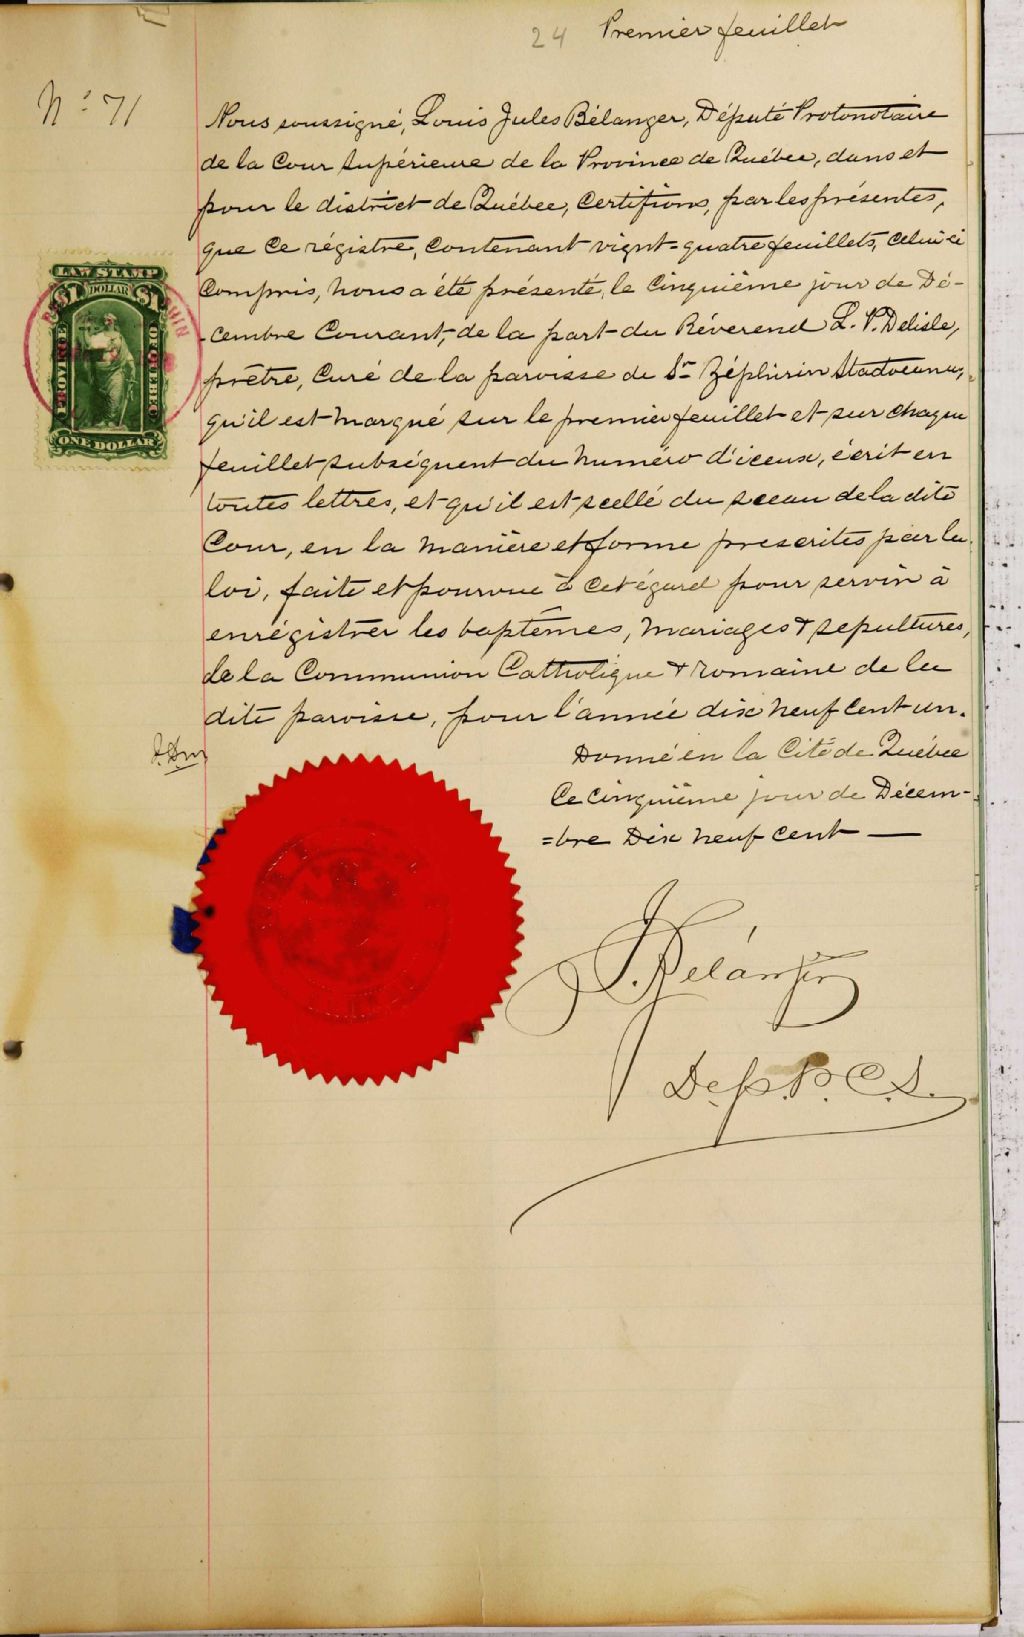 24 Premier feuillet
N° 71
Nous soussigné, Louis Jules Bélanger, Député Protonotaire
de la Cour Supérieure de la Province de Québec, dans et
pour le district de Québec, certifions, par les présentes,
que ce régistre, contenant vignt-quatre feuillets, celui ci
compris, nous a été présenté, le cinquième jour de Dé-
-cembre Courant, de la part du Révérend L. P. Delisle,
prêtre, curé de la paroisse de St Zéphirin Stadvcunu,
qu'il est marqué sur le premier feuillet et sur chaque
feuillet subséquent du numéro d'iceux, écrit en
toutes lettres, et qu'il est scellé du sceau de la dite
Cour, en la manière et forme prescrites par la
loi, faite et pourvue à cet égard pour servir à
enrégistrer les baptêmes, mariages & sépultures,
de la Communion Catholique & romaine de la
dite paroisse, pour l'année dix neuf cent un.
Donné en la Cité de Québec
Ce cinquième jour de Décem-
=bre Dix neuf cent —
J. Bélanger
Dep. P. C. S.
LAW STAMP
$1 DOLLAR $1
PROVINCE OF QUEBEC
ONE DOLLAR